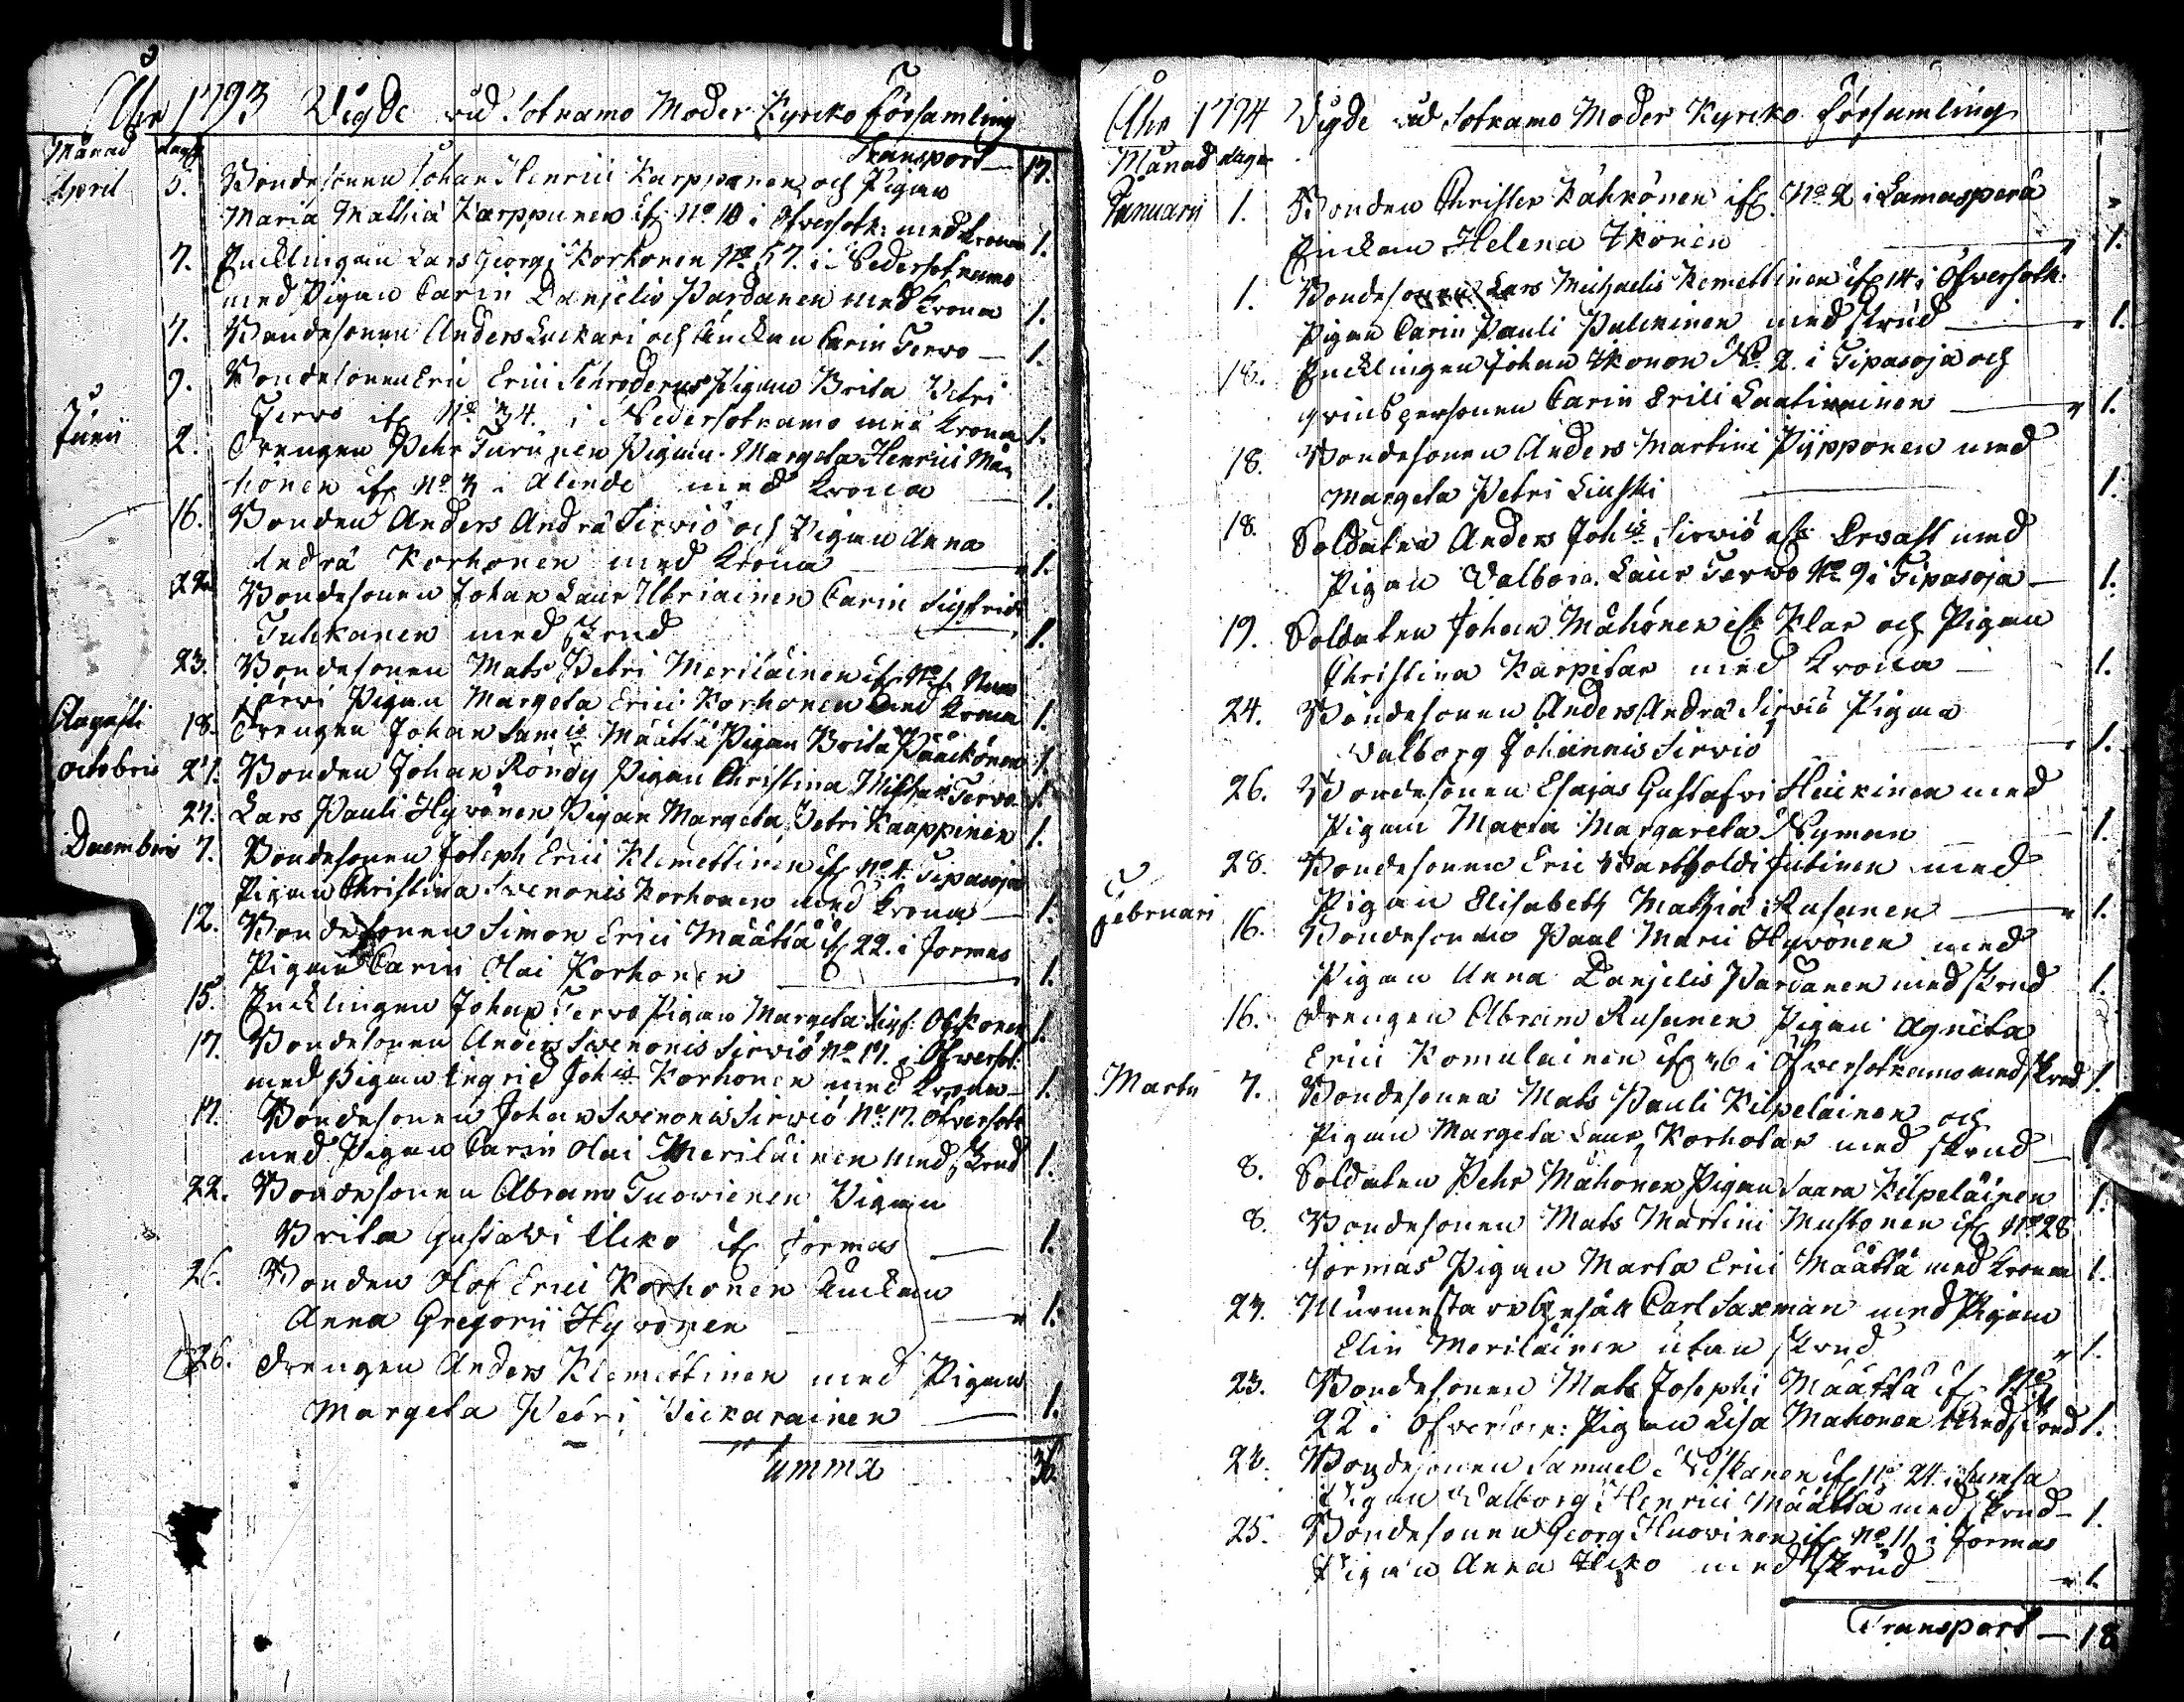 Åhr 1793 Vigde vid Sotkamo Moder Kyrcko Församling
Månad dag
Transport — 17.
April 5. Bondesonen Johan Henrici Karppanen och Pigan
Maria Mathiæ Karppunen if. No 10 i Öfversotk: med Krona 1.
7. Encklingen Lars Georgi Korhonen No 57. i Nedersotkamo
med Pigan Carin Danjelis Pardanen med Krona 1.
7. Bondesonen Anders Luckari och Änckan Carin Tervo — 1.
9. Bondesonen Eric Erici Schroderus Pigan Brita Petri
Tervo if. No 34. i Nedersotkamo med Krona 1.
Junii 2. Drengen Pehr Turunen Pigan Margeta Henrici Mä
hönen if. No 3 i Alende med Krona — 1.
16. Bonden Anders Andræ Sirviö och Pigan Anna
Andræ Korhonen med Krona — 1.
22. Bondesonen Johan Laur Ubriainen Carin Sigfrids
Tuhkanen med Skrud 1.
23. Bondesonen Mats Petri Meriläinen if. No
järvi Pigan Margeta Erici Korhonen med Krona 1.
Augusti 18. Drengen Johan Samis Määttä Pigan Brita Pääckönen 1.
Octobris 27. Bonden Johan Röndy Pigan Christina Tervo 1.
27. Lars Pauli Hyvönen, Pigan Margeta Petri Kaappinen 1.
Decembris 7. Bondesonen Joseph Erici Klemettinen if. No 4. Tipasoja
Pigan Christina Svenonis Korhonen med Krona — 1.
12. Bondesonen Simon Erici Määttä if. 22. i Jormas
Pigan Carin Olai Korhonen — 1.
15. Encklingen Johan Tervo Pigan Margeta Sigf: Ockonen 1.
17. Bondesonen Anders Svenonis Sirviö No 17. i Öfversot:
med Pigan Ingrid Johis Korhonen med Krona — 1.
17. Bondesonen Johan Svenonis Sirviö No. 17. Öfversotk
med Pigan Carin Olai Meriläinen med Skrud 1.
22. Bondesonen Abram Tuovienen Pigan
Brita Gustavi Heiko if. Jormas — 1.
26. Bonden Olof Erici Korhonen Änckan
Anna Gregorii Hyvönen — 1.
26. Drengen Anders Klemettinen med Pigan
Margeta Petri Vickarainen — 1.
Summa 36.
Åhr 1794 Vigde vid Sotkamo Moder Kyrcko Församling
Månad dagar
Januarii 1. Bonden Christer Kähkönen if. No 2 i Lamasperä
Enckan Helena Ikönen — 1.
1. Bondesonen Lars Michaelis Kemettinen if. 14 i Öfversotk.
Pigan Carin Pauli Pulckinen med skrud — 1.
18. Encklingen Johan Ikonen No. 2. i Tipasoja och
qvinspersonen Carin Erici Laatikainen — 1.
18. Bondesonen Anders Martini Pypponen med
Margeta Petri Liuski — 1.
18. Soldaten Anders Johis Sirviö if. Orvast med
Pigan Valborg Laur Tervo No 9 i Tipasoja — 1.
19. Soldaten Johan Mähönen if. Klar och Pigan
Christina Karpitar med Krona — 1.
24. Bondesonen Anders Andræ Sirviö Pigan
Valborg Johannis Sirviö 1.
26. Bondesonen Esajas Gustafvi Heickinen med
Pigan Maria Margareta Nyman — 1.
28. Bondesonen Eric Bartholdi Jutinen med
Pigan Elisabeth Mathiæ Rusanen — 1.
Februari 16. Bondesonen Paul Marci Hyvönen med
Pigan Anna Danjelis Pardanen med skrud 1.
16. Drengen Abram Rusanen Pigan Agneta
Erici Komulainen if. 26 i Öfversotkamo med skrud 1.
Martii 7. Bondesonen Mats Pauli Kilpeläinen och
Pigan Margeta Laur Korhotar med skrud —
8. Soldaten Pehr Mähonen Pigan Saara Kilpeläinen 1.
8. Bondesonen Mats Martini Mustonen if. No 28
Jormas Pigan Marta Erici Määttä med Kronan 1.
23. Murmestare Gesäll Carl Saxman med Pigan
Elin Meriläinen utan skrud 1.
23. Bondesonen Mats Josephi Määttä if. No
22 i Öfversotk: Pigan Lisa Mahonen med skrud 1.
23. Bondesonen Samuel Piskanen if. No 21. i Sumsa
Pigan Valborg Henrici Määttä med skrud — 1.
25. Bondesonen Georg Huovinen if. No 11 i Jormas
Pigan Anna Heiko med skrud 1.
Transport — 18